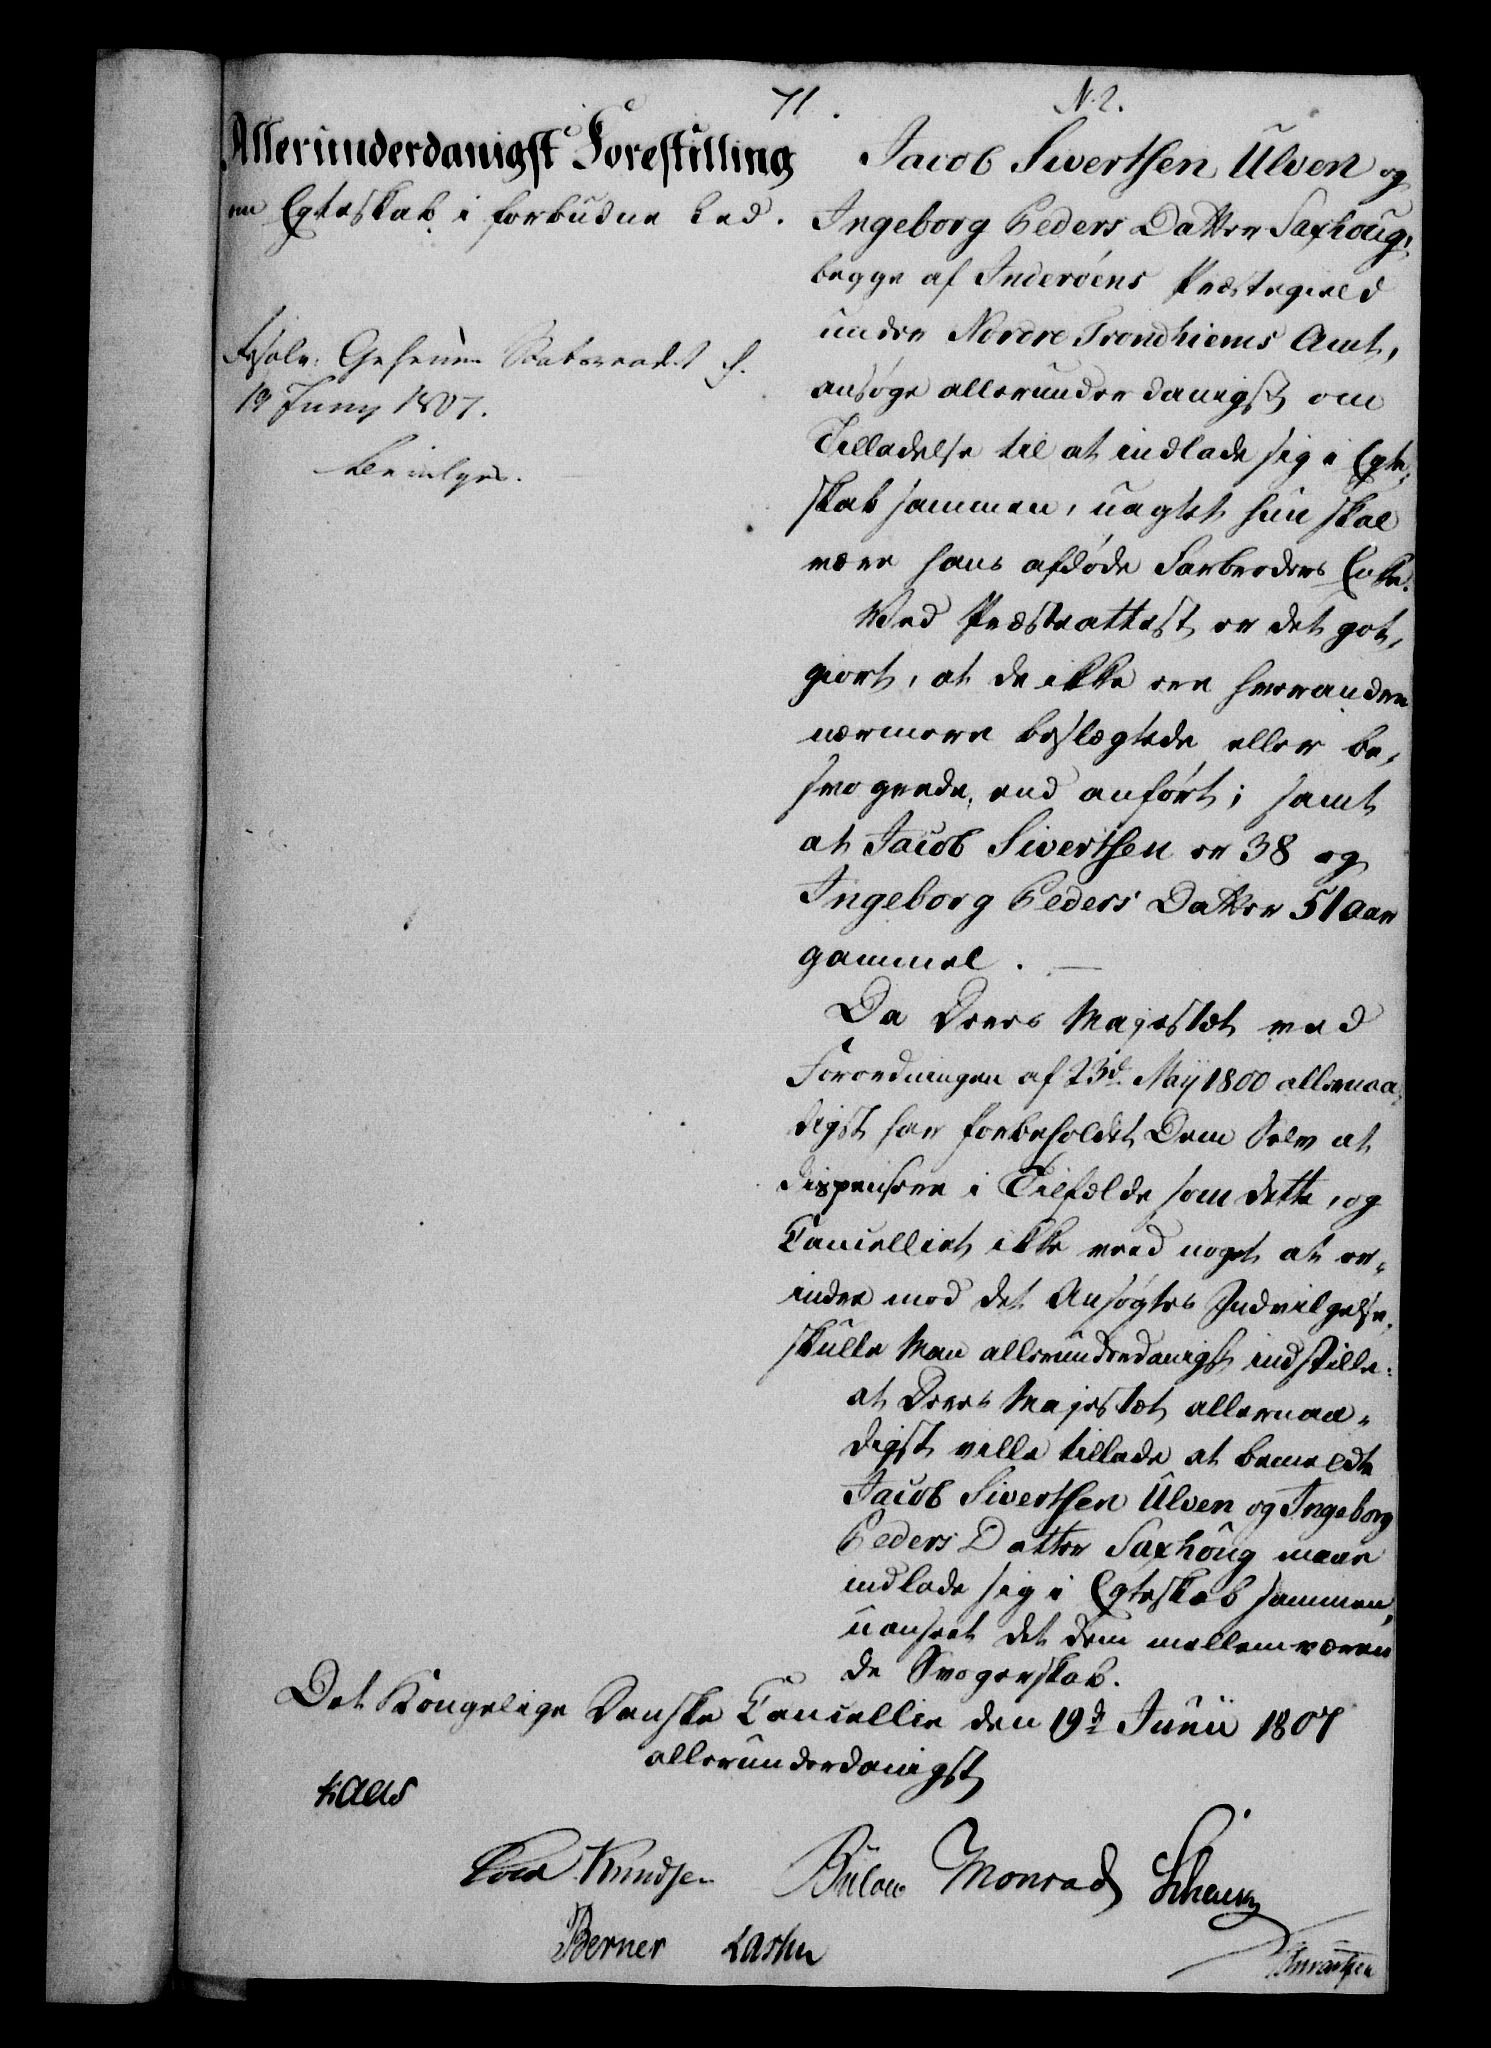 71.
N. 2.
Allerunderdanigst Forestilling
om Egteskab i forbudne Led.
Resolv: Geheime Statsraadet d.
19 Juny 1807.
Bevilges.
Jacob Sivertsen Ulven og
Ingeborg Peders Datter Saxhoug,
begge af Inderöens Præstegield
under Nordre Trondhiems Amt,
ansøge allerunderdanigst om
Tilladelse til at indlade sig i Egte,
skab sammen, uagtet hun skal
være hans afdøde Farbroders Enke.
Ved Præsteattest er det got,
giort, at de ikke ere hverandre
nærmere beslægtede eller be,
svogrede, end anført; samt
at Jacob Sivertsen er 38 og
Ingeborg Peders Datter 51 Aar
gammel.
Da Deres Majestæt ved
Forordningen af 23d. Maij 1800 allernaa,
digst har forbeholdet Dem Selv at
dispensere i Tilfælde som dette, og
Cancelliet ikke veed noget at er,
indre mod det Ansøgtes Indvilgelse,
skulle Man allerunderdanigst indstille:
at Deres Majestæt allernaa,
digst ville tillade at bemeldte
Jacob Sivertsen Ulven og Ingeborg
Peders Datter Saxhoug maae
indlade sig i Egteskab sammen,
uanseet det dem mellemværen
de Svogerskab.
Det Kongelige Danske Cancellie den 19d Junii 1807
allerunderdanigst
Kaas
Knudsen Bülow Monrad
Berner Lassen